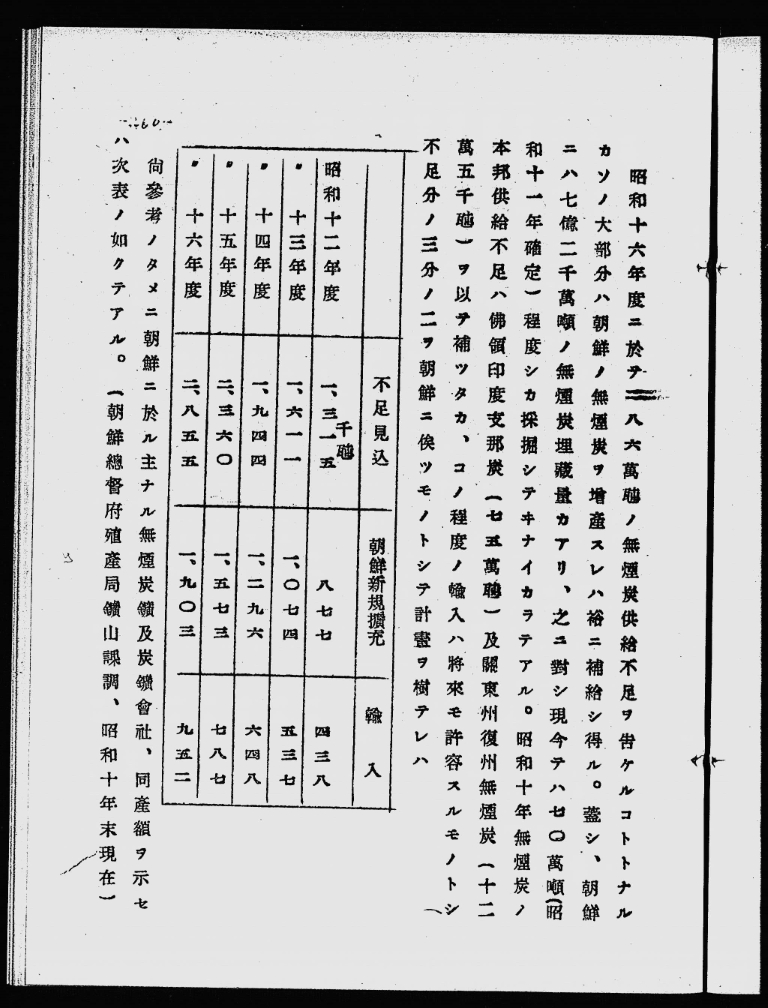 昭和十六年度ニ於テ二八六萬瓲ノ無煙炭供給不足ヲ告ケルコトトナル
カソノ大部分ハ朝鮮ノ無煙炭ヲ增産スレハ裕ニ補給シ得ル。蓋シ、朝鮮
ニハ七億二千萬噸ノ無煙炭埋藏量カアリ、之ニ對シ現今テハ七〇萬噸(昭
和十一年確定)程度シカ採掘シテヰナイカラテアル。昭和十年無煙炭ノ
本邦供給不足ハ佛領印度支那炭(七五萬瓲)及關東州復州無煙炭(十二
萬五千瓲)ヲ以テ補ツタカ、コノ程度ノ輸入ハ將來モ許容スルモノトシ
不足分ノ三分ノ二ヲ朝鮮ニ俟ツモノトシテ計畫ヲ樹テレハ
不足見込 朝鮮新規擴充 輸入
千瓲
昭和十二年度 一、三一五 八七七 四三八
〃 十三年度 一、六一一 一、〇七四 五三七
〃 十四年度 一、九四四 一、二九六 六四八
〃 十五年度 二、三六〇 一、五七三 七八七
〃 十六年度 二、八五五 一、九〇三 九五二
尙參考ノタメニ朝鮮ニ於ル主ナル無煙炭鑛及炭鑛會社、同產額ヲ示セ
ハ次表ノ如クテアル。(朝鮮總督府殖產局鑛山課調、昭和十年末現在)